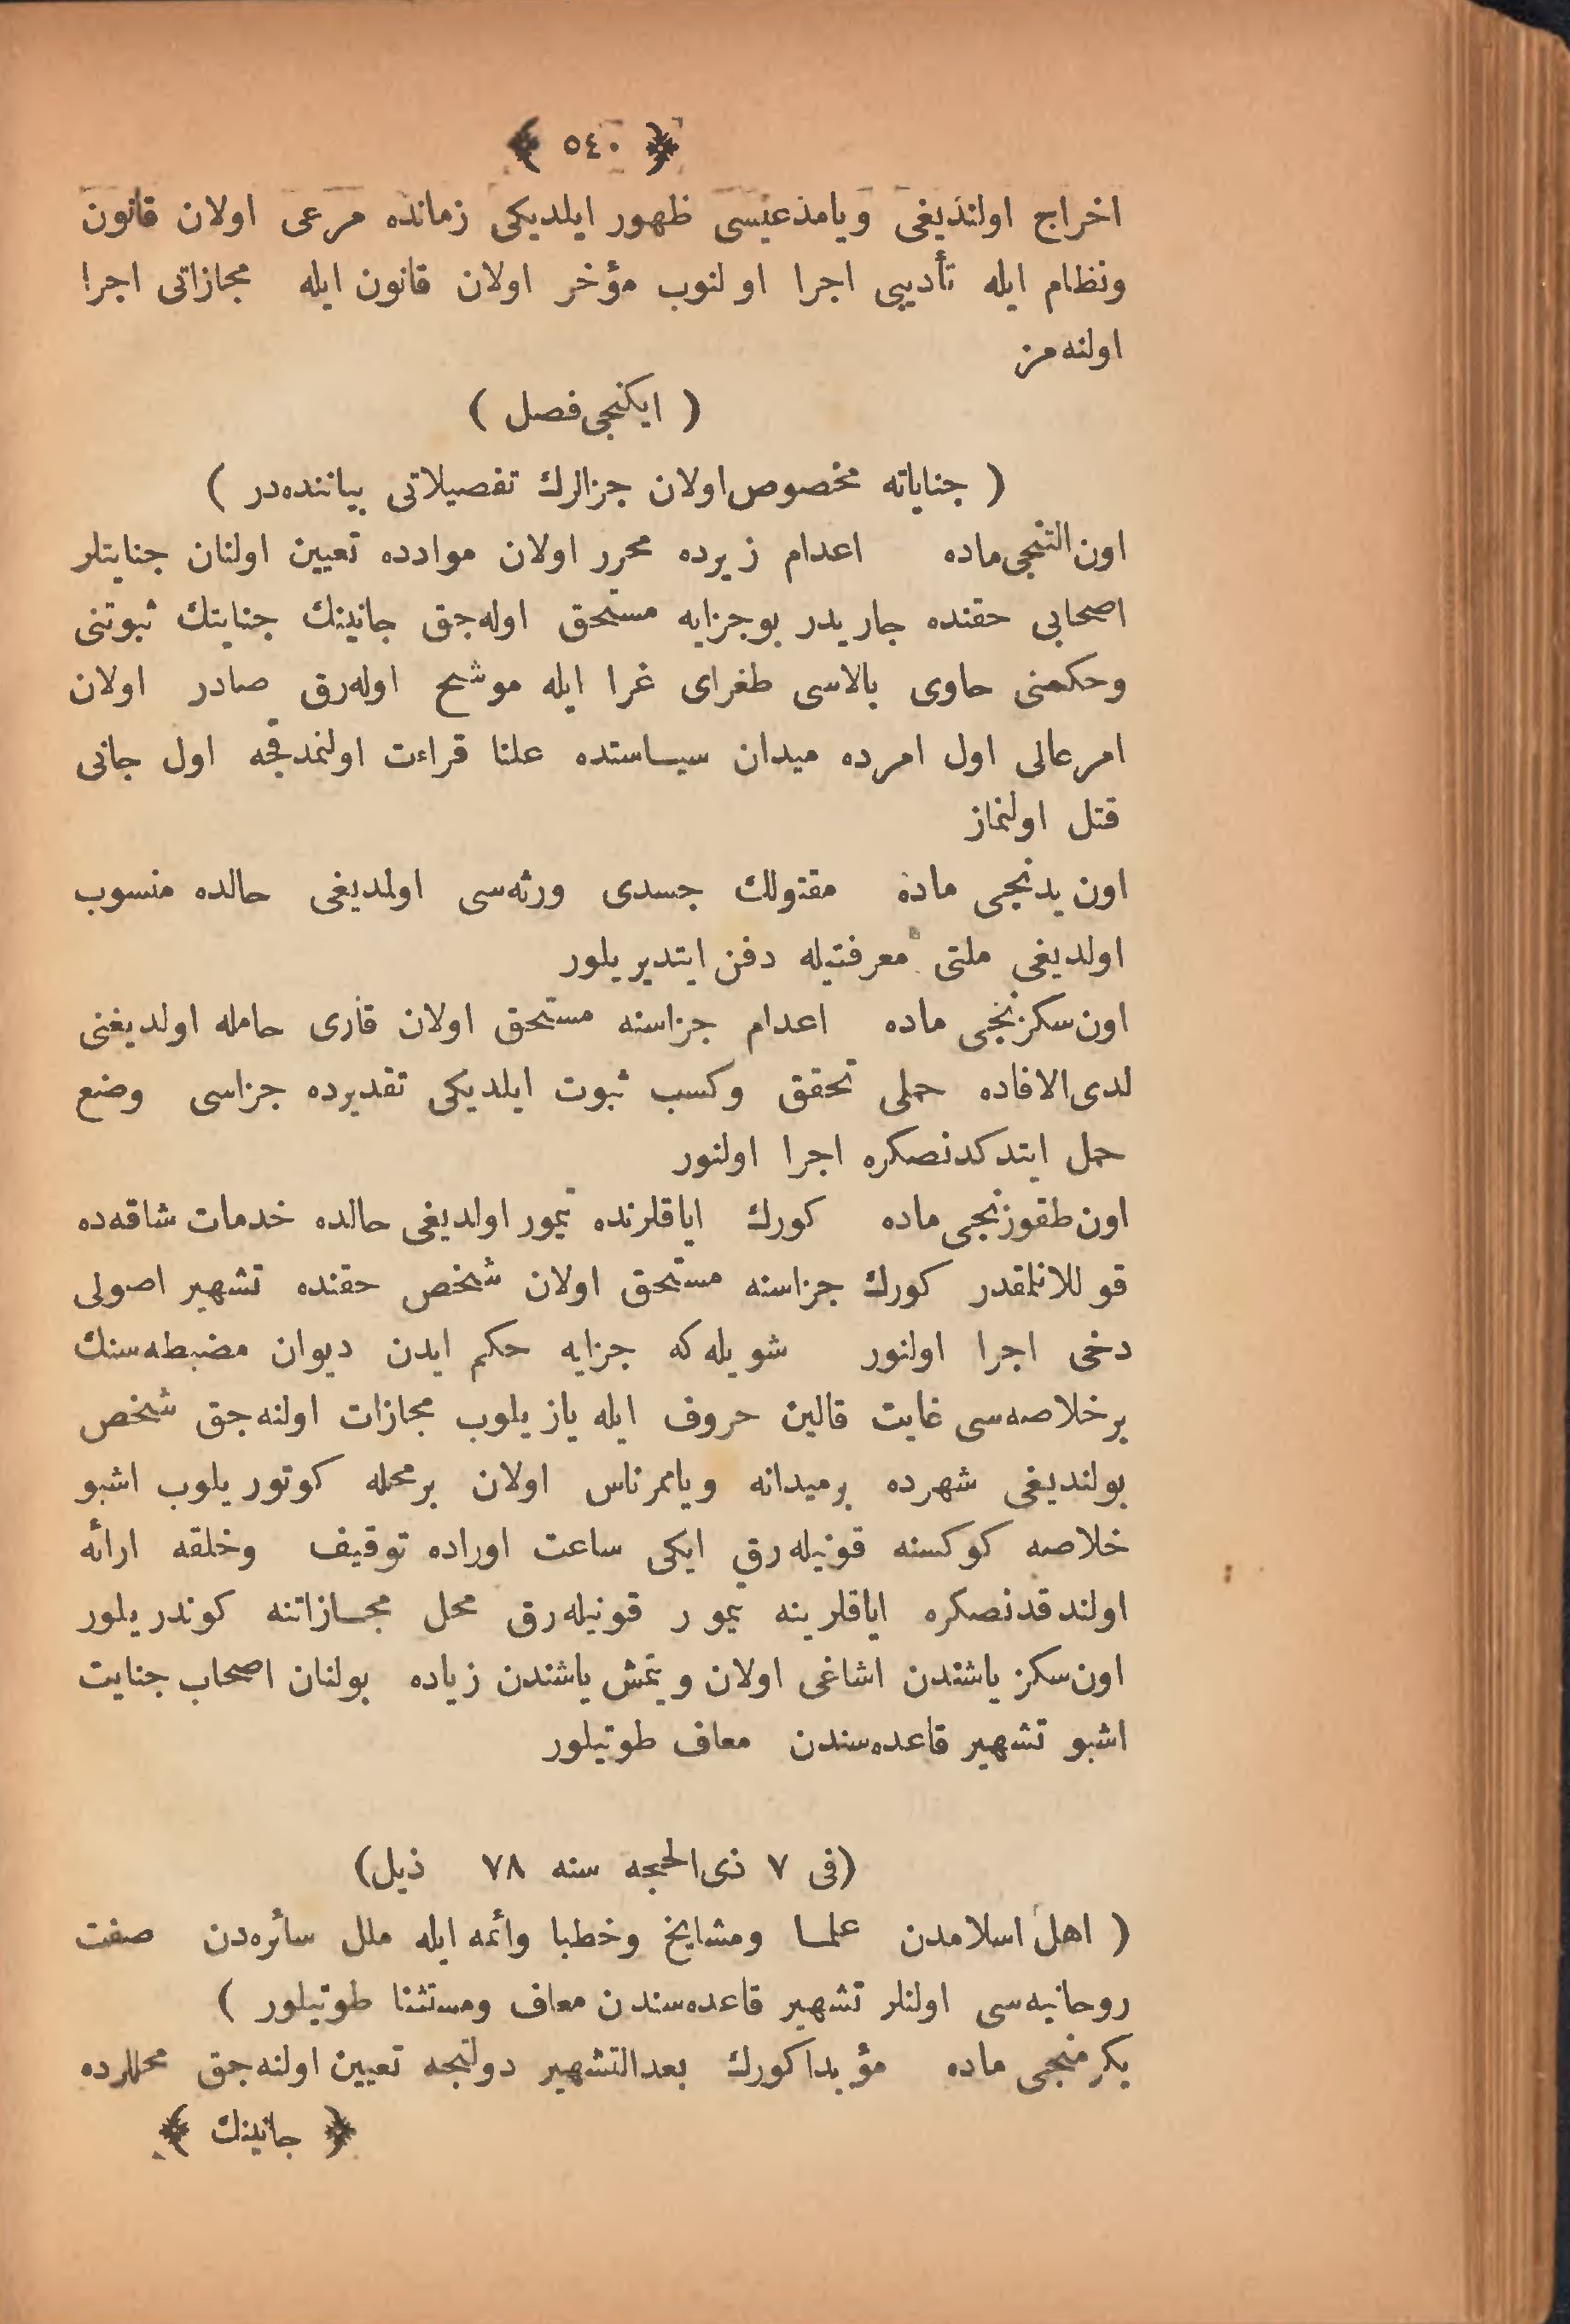 ﴿ ٥٤٠ ﴾
اخراج اولنديغى ويامدعيسى ظهور ايلديكى زمانده مرعى اولان قانون
ونظام ايله تأديبى اجرا اولنوب مؤخر اولان قانون ايله مجازاتى اجرا
اولنه‌مز
( ايكنجى فصل )
( جناياته مخصوص اولان جزالرك تفصيلاتى بياننده‌در )
اون التنجى ماده اعدام زيرده محرر اولان موادده تعيين اولنان جنايتلر
اصحابى حقنده جاريدر بوجزايه مستحق اوله‌جق جانينك جنايتك ثبوتنى
وحكمنى حاوى بالاسى طغراى غرا ايله موشح اوله‌رق صادر اولان
امرعالى اول امرده ميدان سياستده علنا قراءت اولنمدقجه اول جانى
قتل اولنماز
اون يدنجى ماده مقتولك جسدى ورثه‌سى اولمديغى حالده منسوب
اولديغى ملتى معرفتيله دفن ايتديريلور
اون سكزنجى ماده اعدام جزاسنه مستحق اولان قارى حامله اولديغنى
لدى الافاده حملى تحقق وكسب ثبوت ايلديكى تقديرده جزاسى وضع
حمل ايتدكدنصكره اجرا اولنور
اون طقوزنجى ماده كورك اياقلرنده تيمور اولديغى حالده خدمات شاقه‌ده
قوللانلمقدر كورك جزاسنه مستحق اولان شخص حقنده تشهير اصولى
دخى اجرا اولنور شويله‌كه جزايه حكم ايدن ديوان مضبطه‌سنك
برخلاصه‌سى غايت قالين حروف ايله يازيلوب مجازات اولنه‌جق شخص
بولنديغى شهرده برميدانه وياممرناس اولان برمحله كوتوريلوب اشبو
خلاصه كوكسنه قونيله‌رق ايكى ساعت اوراده توقيف وخلقه ارائه
اولندقدنصكره اياقلرينه تيمور قونيله‌رق محل مجازاتنه كوندريلور
اون سكز ياشندن اشاغى اولان ويتمش ياشندن زياده بولنان اصحاب جنايت
اشبو تشهير قاعده‌سندن معاف طوتيلور
(فى ٧ ذى الحجه سنه ٧٨ ذيل)
( اهل اسلامدن علما ومشايخ وخطبا وأئمه ايله ملل سائره‌دن صفت
روحانيه‌سى اولنلر تشهير قاعده‌سندن معاف ومستثنا طوتيلور )
يكرمنجى ماده مؤبدا كورك بعدالتشهير دولتجه تعيين اولنه‌جق محللرده
﴿ جانينك ﴾